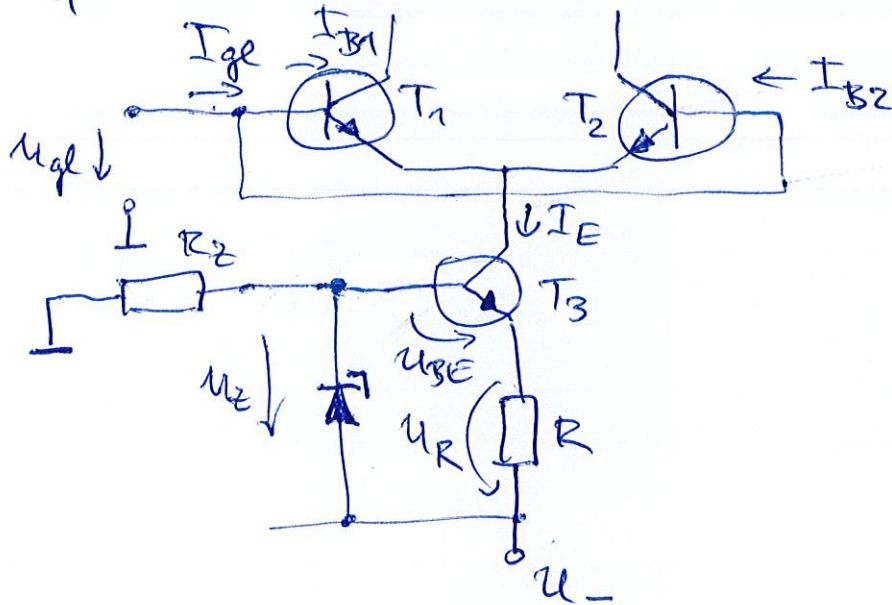 I_gl I_B1
T_1 T_2 ← I_B2
U_gl ↓
↓ I_E
R_Z
T_3
U_BE
U_Z
U_R R
U_-